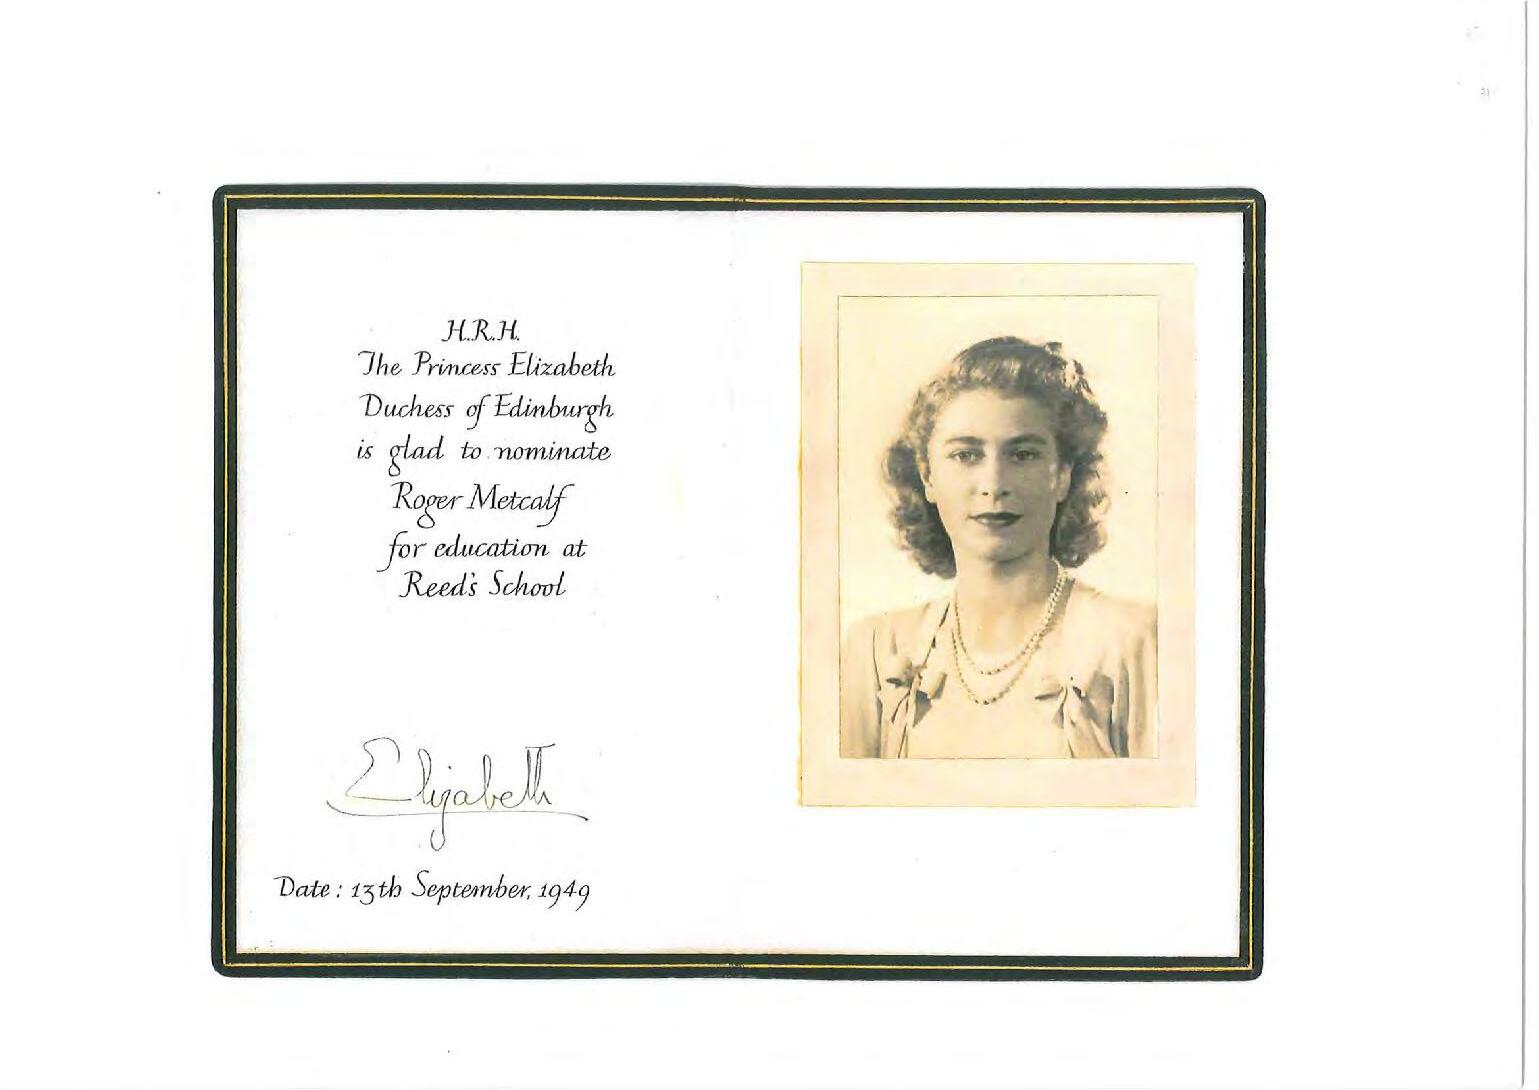 H.R.H.
The Princess Elizabeth
Duchess of Edinburgh
is glad to nominate
Roger Metcalf
for education at
Reed's School
Elizabeth
Date: 13th September, 1949